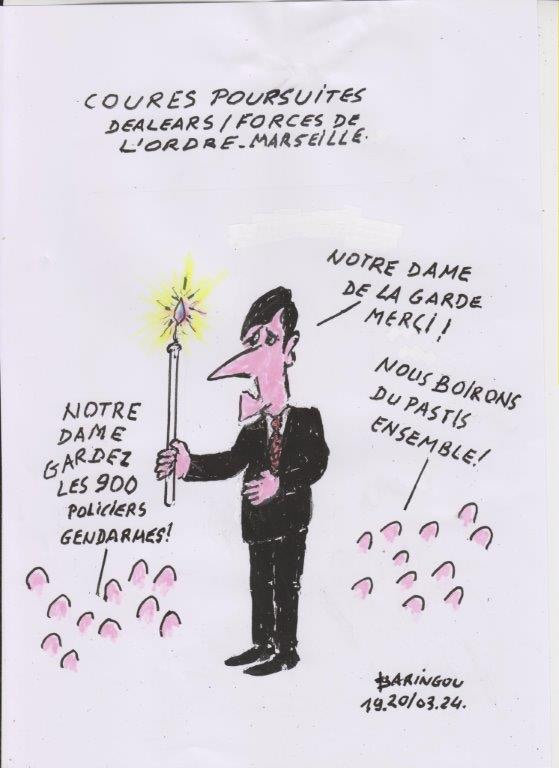 COURES POURSUITES
DEALEARS/FORCES DE
L'ORDRE-MARSEILLE.
NOTRE DAME
DE LA GARDE
MERÇI!
NOUS BOIRONS
DU PASTIS
ENSEMBLE!
NOTRE
DAME
GARDEZ
LES 900
POLICIERS
GENDARMES!
BARINGOU
19.20/03.24.